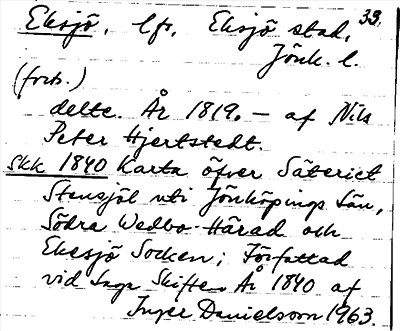 Eksjö, lfs, Eksjö stad, 39.
Jönk. l.
(forts.)
delte. År 1819. — af Nils
Peter Hjertstedt.
Skk 1840 Karta öfver Säteriet
Stensjöl uti Jönköpings Län,
Södra Wedbo Härad och
Eksjö Socken; Författad
vid Laga Skifte År 1840 af
Inger Danielsson 1963.